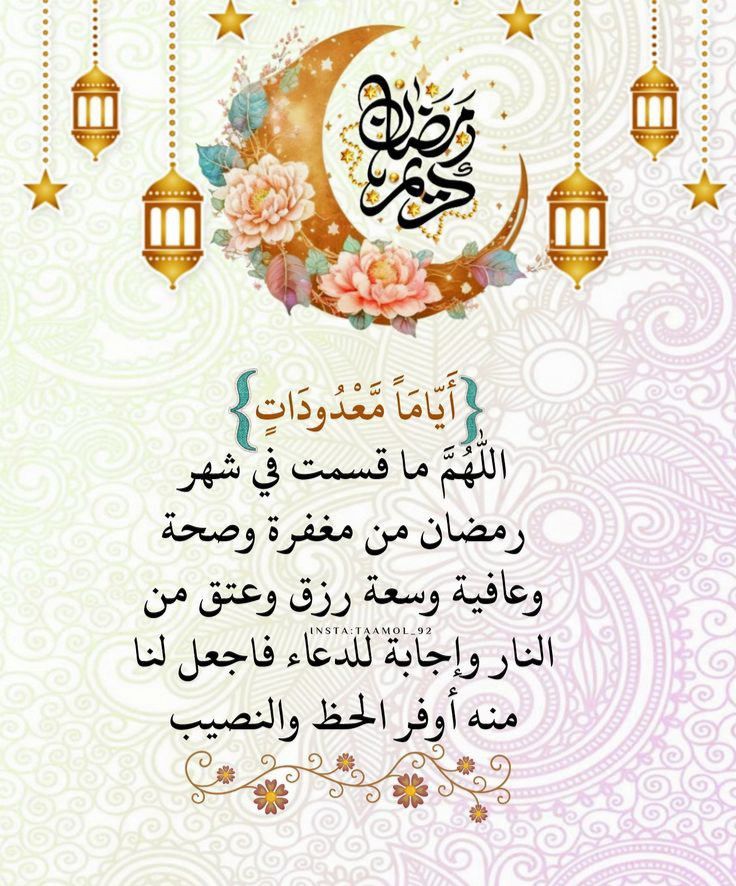 رمضان
كريم
{أَيَّامَاً مَّعْدُودَاتٍ}
اللّٰهُمَّ ما قسمت في شهر
رمضان من مغفرة وصحة
وعافية وسعة رزق وعتق من
INSTA:TAAMOL_92
النار وإجابة للدعاء فاجعل لنا
منه أوفر الحظ والنصيب